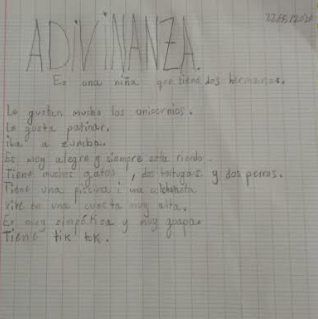 22/05/2020
ADIVINANZA.
Es una niña que tiene dos hermanos.
Le gustan mucho los unicornios.
Le gusta patinar.
iba a zumba.
Es muy alegre y siempre esta riendo.
Tiene muchos gatos, dos tortugas y dos perros.
Tiene una piscina i una
Vive en una cuesta muy alta.
Es muy simpática y muy guapa.
Tiene tik tok.